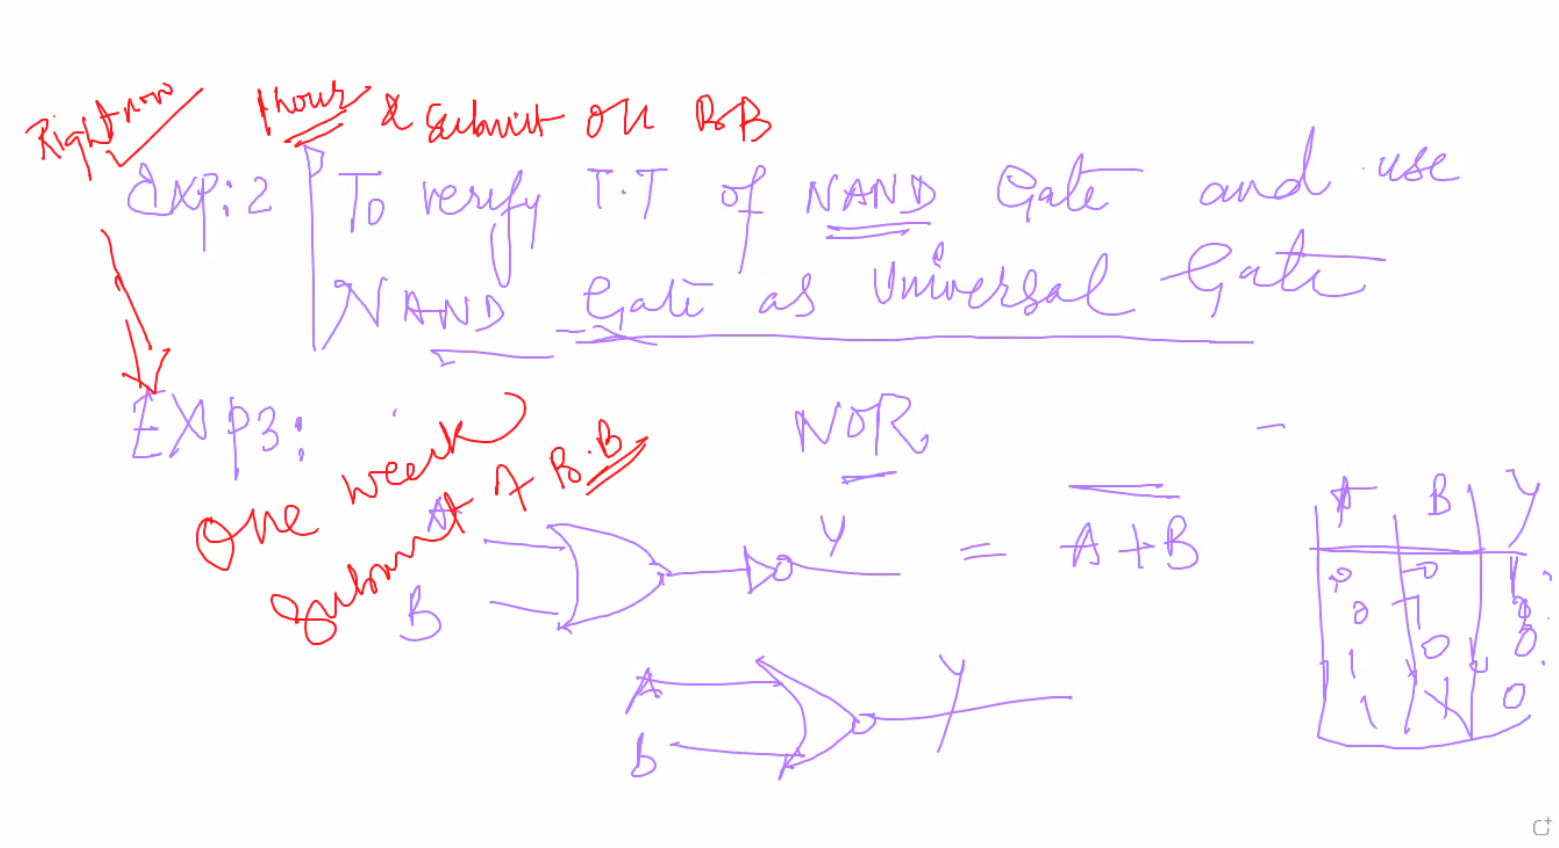 Right now 1 hour & Submit on BB
Exp: 2 To verify T.T of NAND Gate and use
NAND Gate as Universal Gate
Exp 3: NOR
One week
Submit B.B
A
B
Y
= A+B
A B Y
0 0 1
0 1
1 0 0
1 1 0
A
B
Y